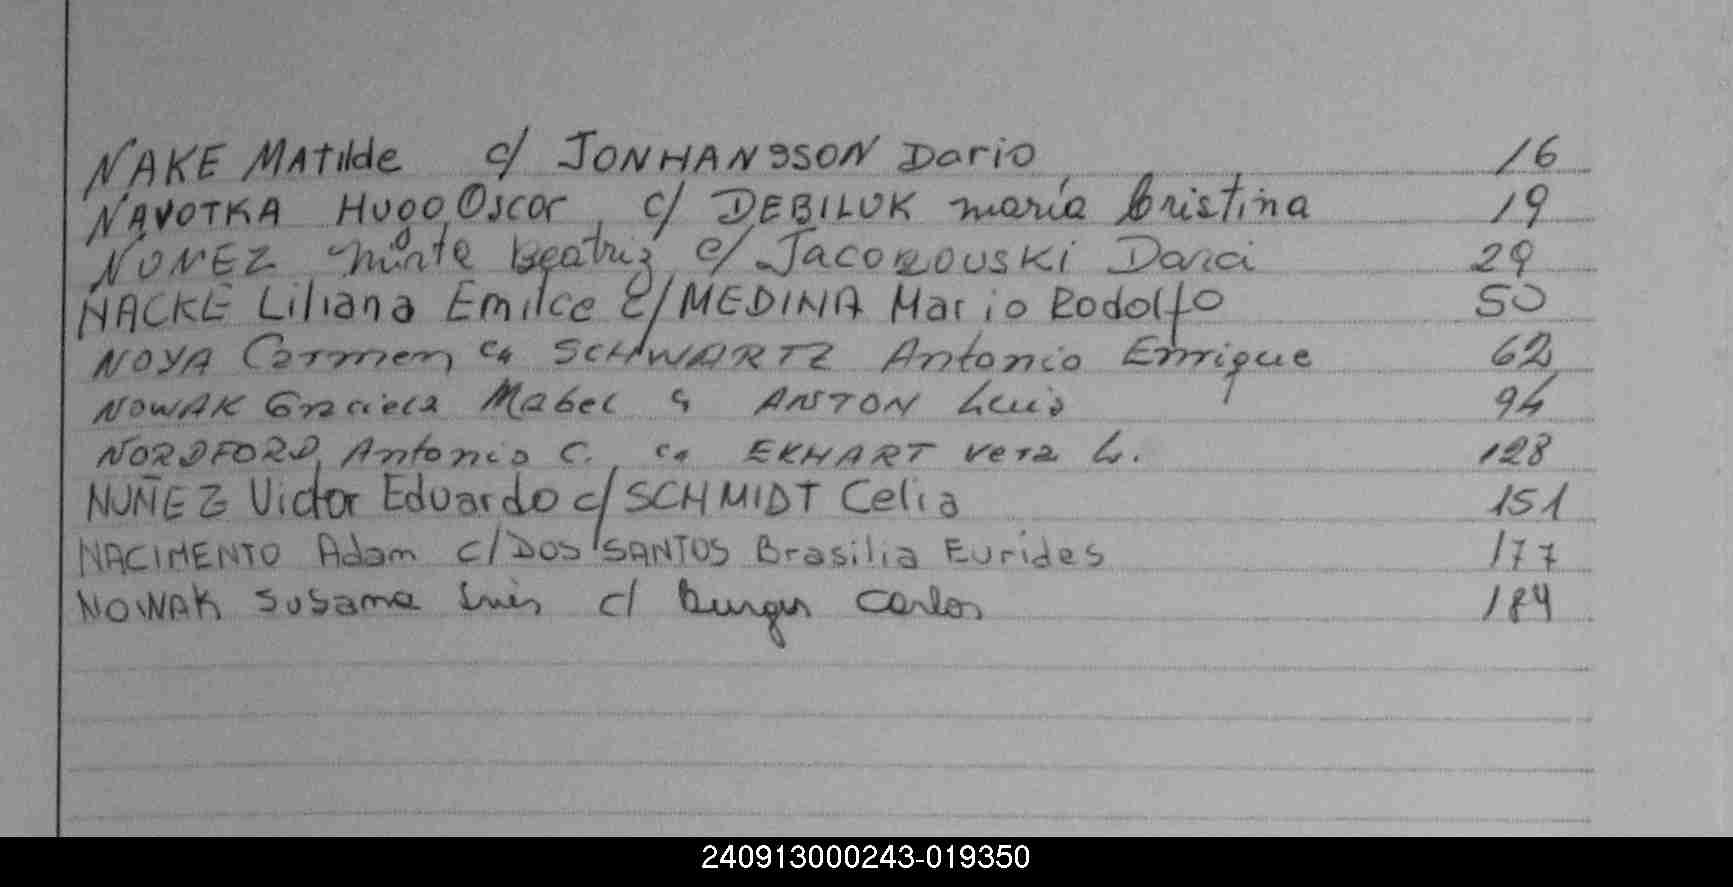 NAKE Matilde c/ JONHANSSON Dario 16
NAVOTKA Hugo Oscar c/ DEBILUK maría Cristina 19
NUNEZ Beatriz c/ JACOBOUSKI Darci 29
NACKE Liliana Emilce C/MEDINA Mario Rodolfo 50
NOYA Carmen ca SCHWARTZ Antonio Enrique 62
NOWAK Graciela Mabel ca ANTON Luis 94
NORDFORD Antonio C. ca EKHART Vera L. 128
NUÑEZ Victor Eduardo c/SCHMIDT Celia 151
NACIMENTO Adam c/DOS SANTOS Brasilia Eurides 177
NOWAK Susana Inés c/ Burger Carlos 184
240913000243-019350